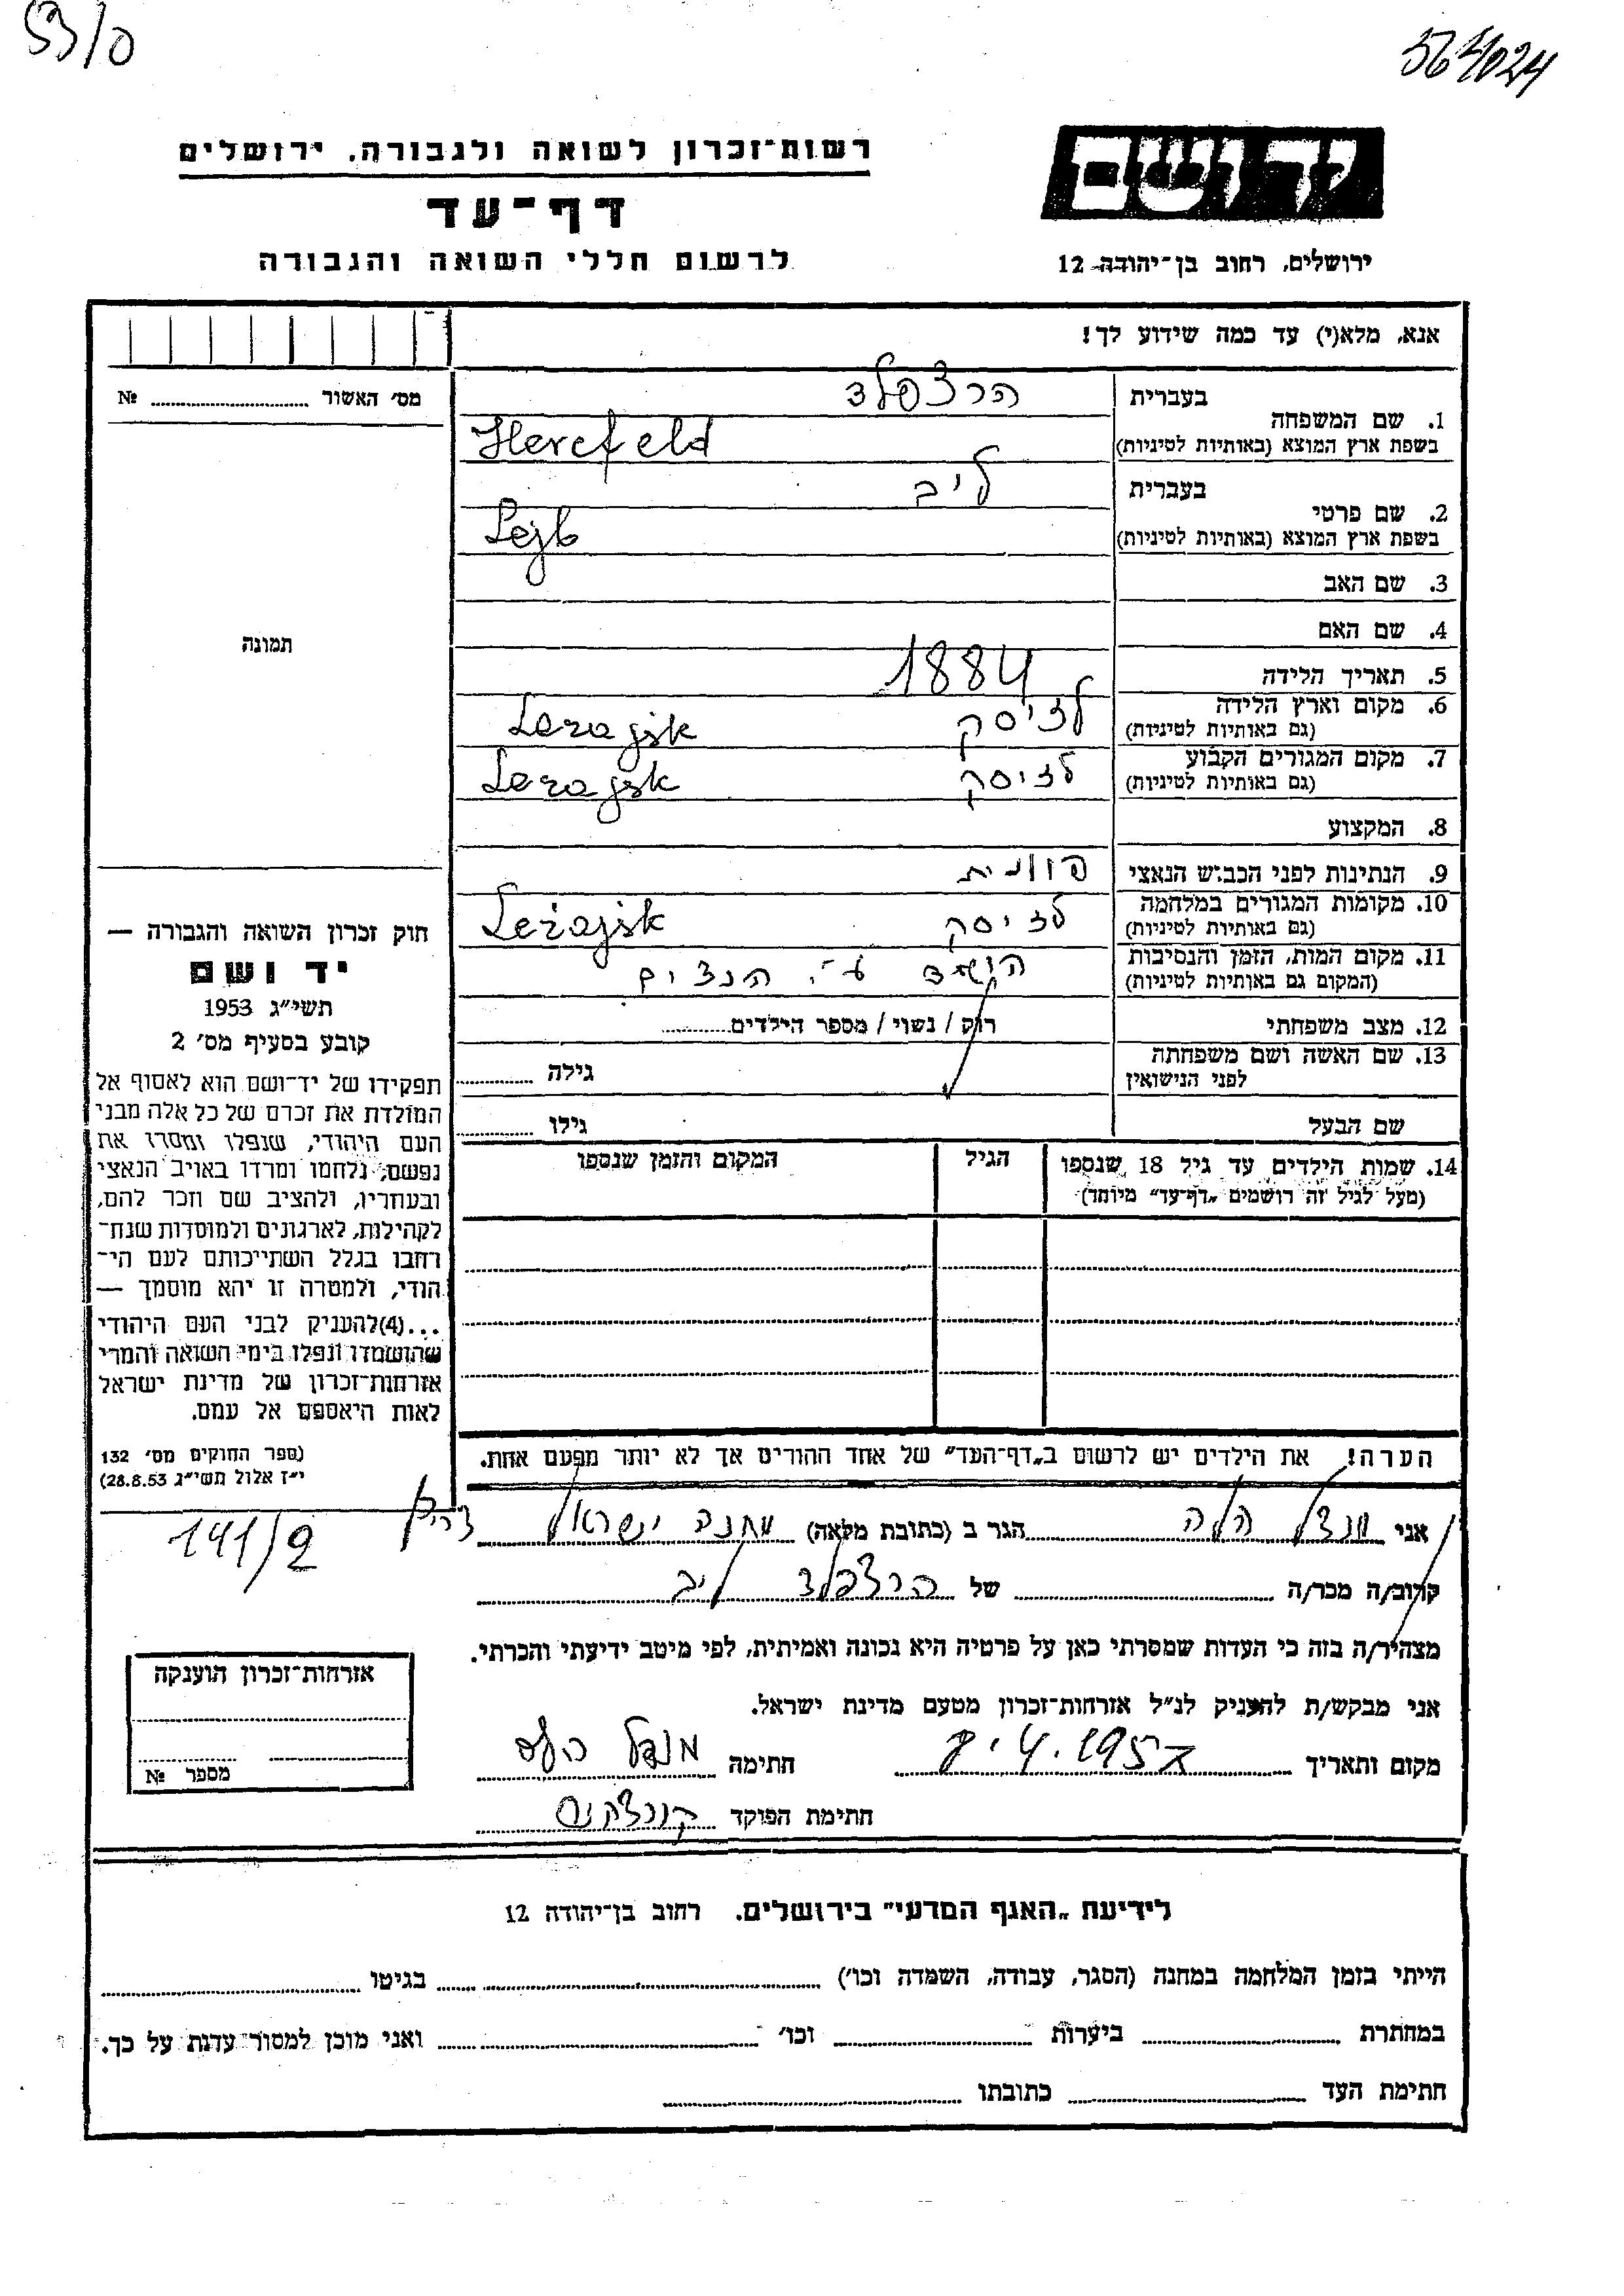 53/0
564024
רשות־זכרון לשואה ולגבורה, ירושלים
ידושם
דף־עד
לרשום חללי השואה והגבורה
ירושלים, רחוב בן־יהודה 12
אנא, מלא(י) עד כמה שידוע לך!
מס׳ האשור № 
בעברית הרצפלד
1. שם המשפחה
בשפת ארץ המוצא (באותיות לטיניות) Hercfeld
בעברית ליב
2. שם פרטי
בשפת ארץ המוצא (באותיות לטיניות) Lejb
3. שם האב
4. שם האם
תמונה
5. תאריך הלידה 1884
6. מקום וארץ הלידה
(גם באותיות לטיניות) לזיסק Lezajsk
7. מקום המגורים הקבוע
(גם באותיות לטיניות) לזיסק Lezajsk
8. המקצוע
9. הנתינות לפני הכבוש הנאצי פולנית
10. מקומות המגורים במלחמה
(גם באותיות לטיניות) לזיסק Leżajsk
11. מקום המות, הזמן והנסיבות
(המקום גם באותיות לטיניות) הושמד ע״י הנצים
12. מצב משפחתי רוק / נשוי / מספר הילדים
13. שם האשה ושם משפחתה
לפני הנישואין גילה
שם הבעל גילו
14. שמות הילדים עד גיל 18 שנספו
(מעל לגיל זה רושמים „דף־עד״ מיוחד)
הגיל
המקום והזמן שנספו
חוק זכרון השואה והגבורה —
יד ושם
תשי״ג 1953
קובע בסעיף מס׳ 2
תפקידו של יד־ושם הוא לאסוף אל
המולדת את זכרם של כל אלה מבני
העם היהודי, שנפלו ומסרו את
נפשם, נלחמו ומרדו באויב הנאצי
ובעוזריו, ולהציב שם וזכר להם,
לקהילות, לארגונים ולמוסדות שנח־
רחבו בגלל השתייכותם לעם הי־
הודי, ולמטרה זו יהא מוסמך —
...(4)להעניק לבני העם היהודי
שהושמדו ונפלו בימי השואה והמרי
אזרחות־זכרון של מדינת ישראל
לאות היאספם אל עמם.
(ספר החוקים מס׳ 132
י״ז אלול תשי״ג 28.8.53)
141/2
הערה! את הילדים יש לרשום ב„דף־העד״ של אחד ההורים אך לא יותר מפעם אחת.
אני מנדל הלה הגר ב (כתובת מלאה) מחנה ישראל צריף
קרוב/ה מכר/ה של הרצפלד ליב
מצהיר/ה בזה כי העדות שמסרתי כאן על פרטיה היא נכונה ואמיתית, לפי מיטב ידיעתי והכרתי.
אני מבקש/ת להעניק לנ״ל אזרחות־זכרון מטעם מדינת ישראל.
מקום ותאריך 8.4.1957 חתימה
חתימת הפוקד
אזרחות־זכרון הוענקה
מספר №
לידיעת „האגף המדעי״ בירושלים. רחוב בן־יהודה 12
הייתי בזמן המלחמה במחנה (הסגר, עבודה, השמדה וכו׳) בגיטו
במחתרת ביערות וכו׳ ואני מוכן למסור עדות על כך.
חתימת העד כתובתו